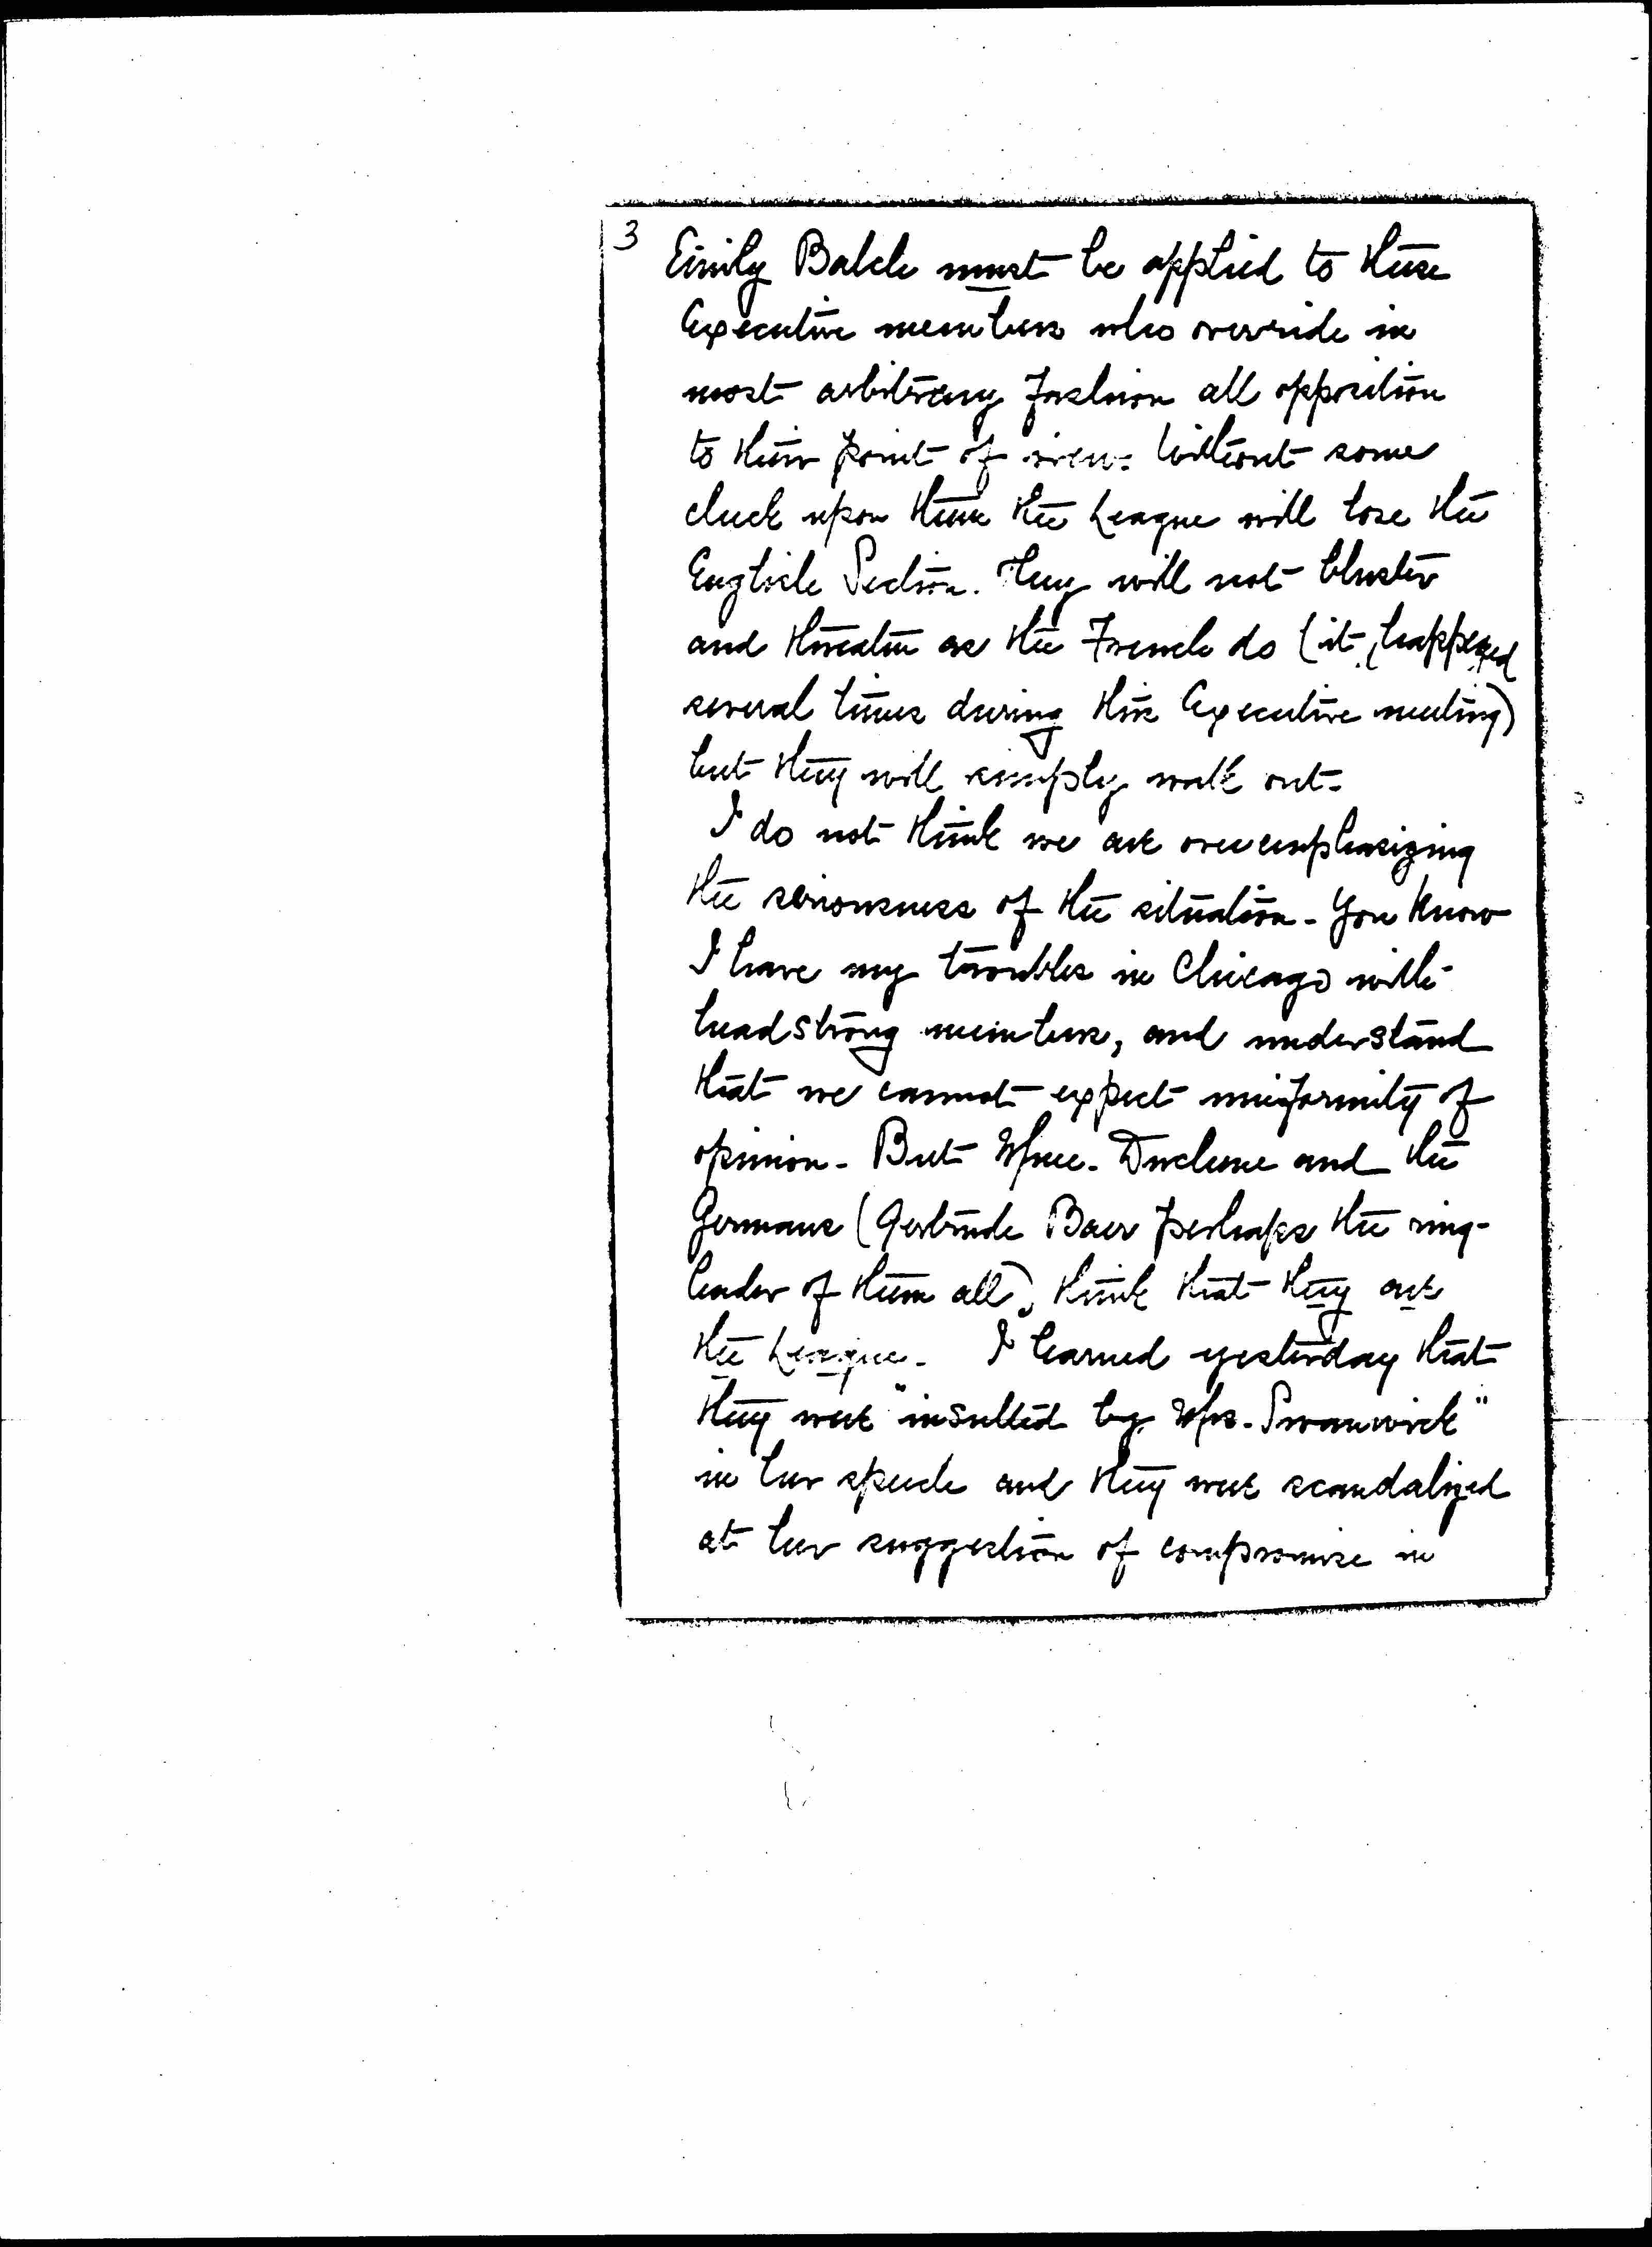 3
Emily Balch must be applied to these
Executive members who override in
most arbitrary fashion all opposition
to their point of view. Without some
check upon them the League will lose the
English Section. They will not bluster
and threaten as the French do (it happened
several times during this Executive meeting)
but they will simply walk out.
I do not think we are overemphasizing
the seriousness of the situation. You know
I have my troubles in Chicago with
headstrong members, and understand
that we cannot expect uniformity of
opinion. But Mme. Duchene and the
Germans (Gertrude Baer perhaps the ring-
leader of them all), think that they are
the League. I learned yesterday that
they were "insulted by Mrs. Swanwick"
in her speech and they were scandalized
at her suggestion of compromise in